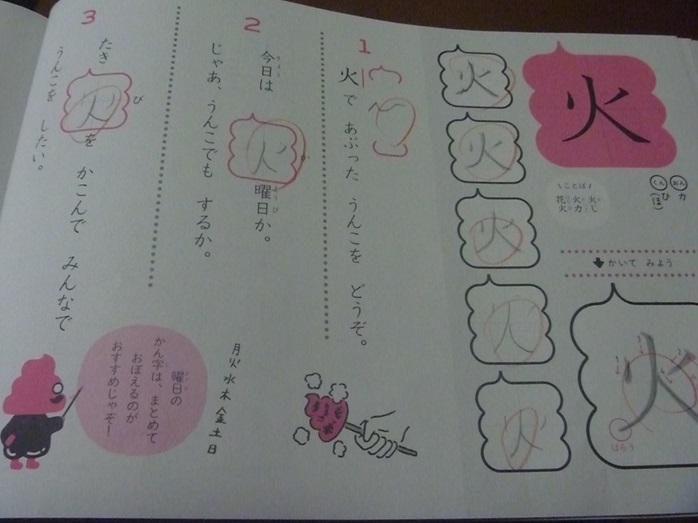 火
おん
カ
くん
ひ
(ほ)
ことば
火じ
火力
花火
かいて みよう
火
はらう
火
火
火
火
火
1
火で あぶった うんこを どうぞ。
2
今日は火曜日か。
じゃあ、うんこでも するか。
3
たき火を かこんで みんなで
うんこを したい。
月火水木金土日
曜日の
かん字は、まとめて
おぼえるのが
おすすめじゃぞ!